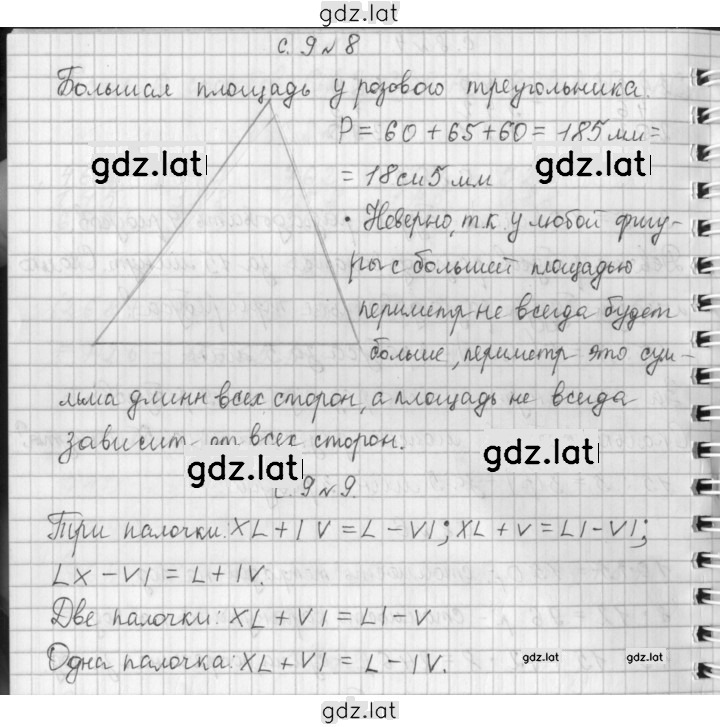 gdz.lat
с. 9 № 8
Большая площадь у розового треугольника.
P = 60 + 65 + 60 = 185 мм =
gdz.lat gdz.lat
= 18 см 5 мм
• Неверно, т.к. у любой фигу-
ры с большей площадью
периметр не всегда будет
больше, периметр это сум-
льма длинн всех сторон, а площадь не всегда
зависит от всех сторон.
gdz.lat gdz.lat
с. 9 № 9.
Три палочки: XL + IV = L - VI; XL + V = LI - VI;
LX - VI = L + IV.
Две палочки: XL + VI = LI - V
Одна палочка: XL + VI = L - IV.
gdz.lat gdz.lat
gdz.lat